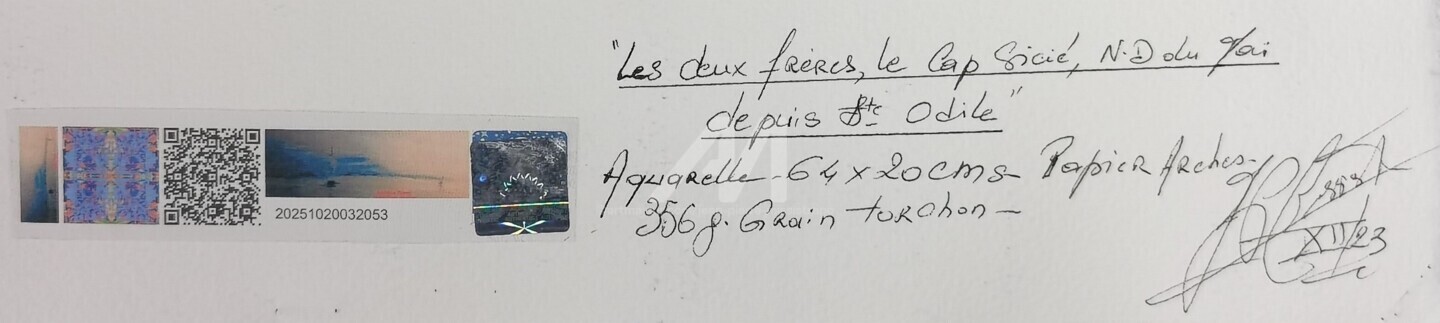 "Les deux frères, le Cap Sicié, N.D du Mai
depuis Ste Odile"
Aquarelle - 64 x 20 cms - Papier Arches -
356 g. Grain torchon -
XII/23
20251020032053